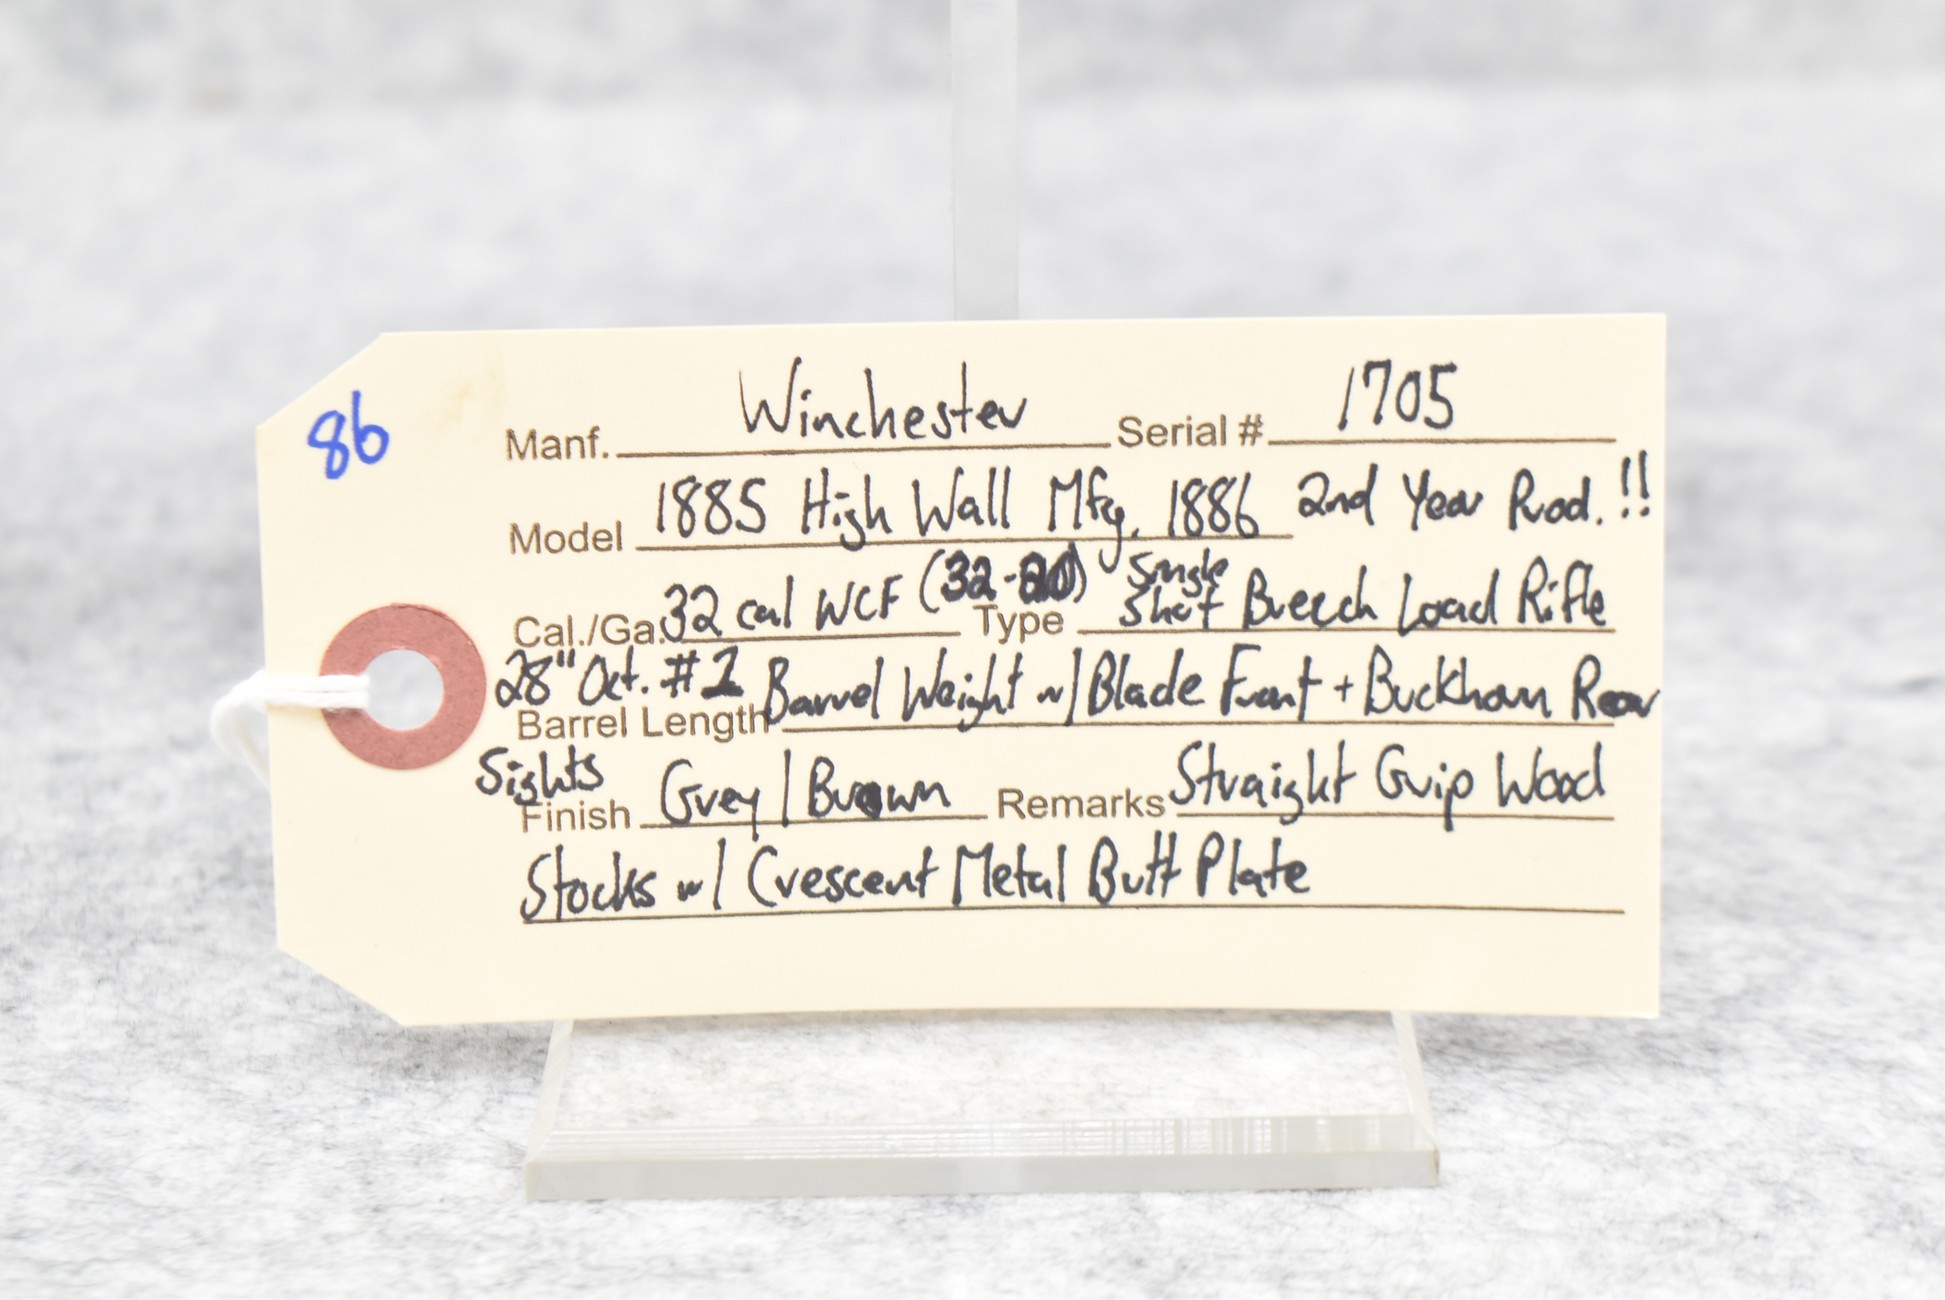 86
Manf. Winchester Serial # 1705
Model 1885 High Wall Mfg. 1886 2nd Year Prod.!!
Cal./Ga. 32 cal WCF (32-20) Type Single Shot Breech Load Rifle
28" Oct. #2 Barrel Weight w/ Blade Front + Buckhorn Rear
Barrel Length
Sights
Finish Grey/Brown Remarks Straight Grip Wood
Stocks w/ Crescent Metal Butt Plate